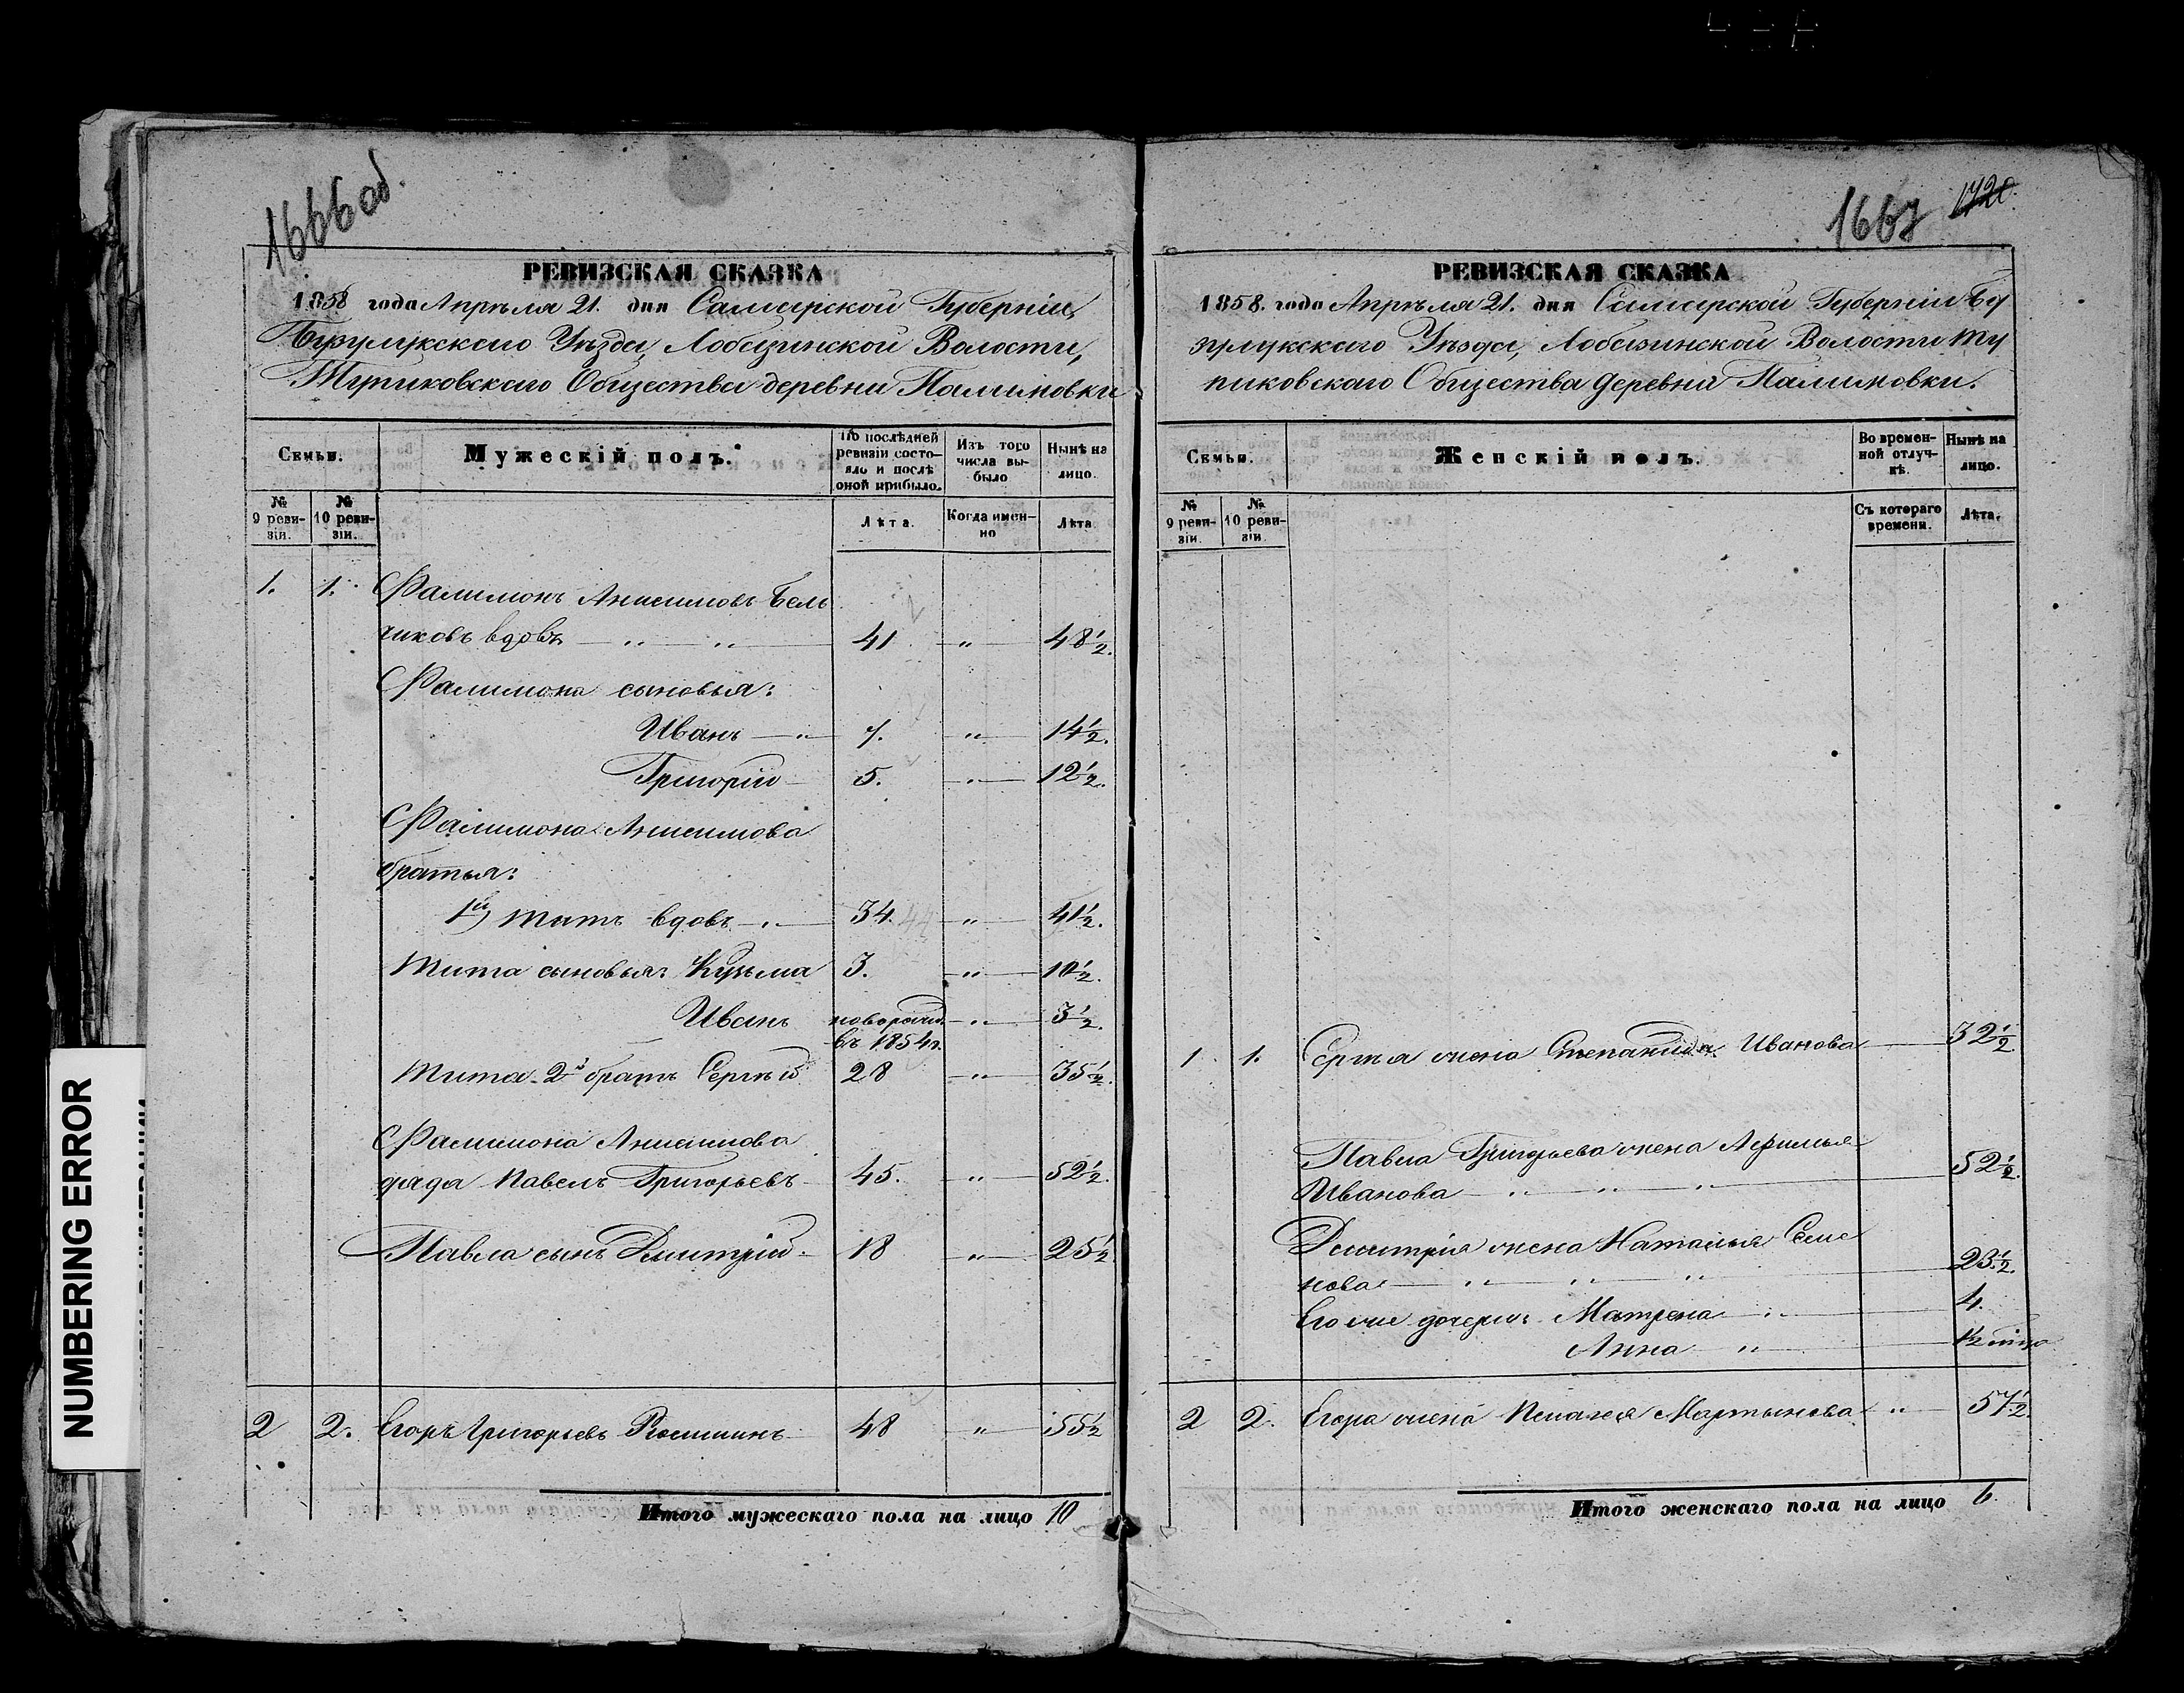 1666 об.
РЕВИЗСКАЯ СКАЗКА
1858 года Апрѣля 21. дня Самарской Губерніи,
Бузулукскаго Уѣзда, Лобазинской Волости,
Тупиковскаго Общества деревни Палимовки
Семьи.
Мужескій полъ.
По послѣдней ревизіи состояло и послѣ оной прибыло.
Изъ того числа выбыло
Нынѣ на лицо.
№ 9 ревизіи.
№ 10 ревизіи.
Лѣта.
Когда именно
Лѣта
1. 1. Фалимонъ Анисимовъ Бель
чиковъ вдовъ — " — " — 41 — " — 48½.
Фалимона сыновья:
Иванъ — " — 7. — " — 14½.
Григорій — 5. — " — 12½.
Фалимона Анисимова
братья:
1й Титъ вдовъ — " — 34. — " — 41½.
Тита сыновья: Кузьма 3. — " — 10½.
Иванъ новорожд. — " — 3½.
въ 1854г.
Тита 2й братъ Сергѣй 28 — " — 35½.
Фалимона Анисимова
дядя Павелъ Григорьевъ 45. — " — 52½.
Павла сынъ Дмитрій 18 — " — 25½
2 2. Егоръ Григорьевъ 48 — " — 55½
Итого мужескаго пола на лицо 10
1667 1720
РЕВИЗСКАЯ СКАЗКА
1858. года Апрѣля 21. дня Самарской Губерніи Бу
зулукскаго Уѣзда, Лобазинской Волости Ту
пиковскаго Общества деревни Палимовки.
Семьи.
Женскій полъ.
Во временной отлучкѣ.
Нынѣ на лицо.
№ 9 ревизіи.
№ 10 ревизіи
Съ котораго времени.
Лѣта.
1. 1. Сергѣя жена Степанида Иванова — 32½
Павла Григорьева жена Афимья
Иванова — " — " — " — 52½.
Дмитрія жена Наталья Семе
нова — " — " — " — 23½.
Его же дочери: Матрена — " — 4.
Анна — " — 1½
2 2. Егора жена Пелагея Мартынова — " — 57½.
Итого женскаго пола на лицо 6.
NUMBERING ERROR